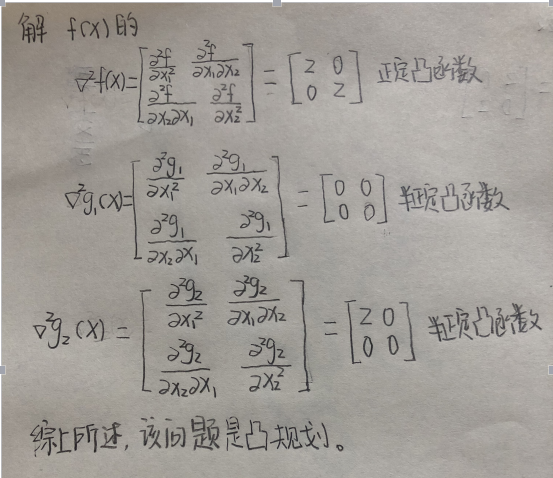 解 f(x)的
∇²f(x)=[∂²f/∂x₁² ∂²f/∂x₁∂x₂; ∂²f/∂x₂∂x₁ ∂²f/∂x₂²] = [2 0; 0 2] 正定凸函数
∇²g₁(x)=[∂²g₁/∂x₁² ∂²g₁/∂x₁∂x₂; ∂²g₁/∂x₂∂x₁ ∂²g₁/∂x₂²] = [0 0; 0 0] 半正定凸函数
∇²g₂(x) = [∂²g₂/∂x₁² ∂²g₂/∂x₁∂x₂; ∂²g₂/∂x₂∂x₁ ∂²g₂/∂x₂²] = [2 0; 0 0] 半正定凸函数
综上所述,该问题是凸规划。